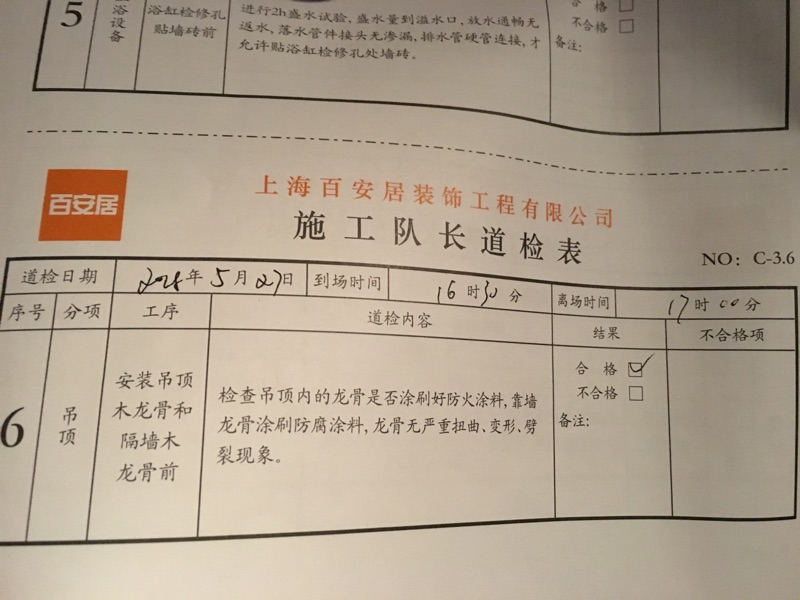 5
浴设备
浴缸检修孔
贴墙砖前
进行2h盛水试验,盛水量到溢水口,放水通畅无
返水,落水管件接头无渗漏,排水管硬管连接,才
允许贴浴缸检修孔处墙砖。
合格 □
不合格 □
备注:
百安居
上海百安居装饰工程有限公司
施工队长道检表
NO: C-3.6
道检日期 年5月27日 到场时间 16时30分 离场时间 17时00分
序号 分项 工序 道检内容 结果 不合格项
6
吊顶
安装吊顶
木龙骨和
隔墙木
龙骨前
检查吊顶内的龙骨是否涂刷好防火涂料,靠墙
龙骨涂刷防腐涂料,龙骨无严重扭曲、变形、劈
裂现象。
合格 ☑
不合格 □
备注: